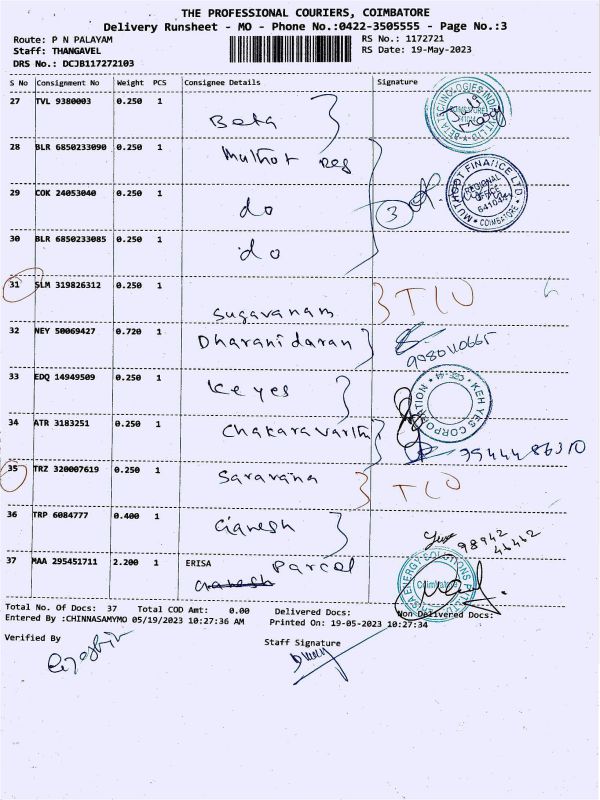 THE PROFESSIONAL COURIERS, COIMBATORE
Delivery Runsheet - MO - Phone No.:0422-3505555 - Page No.:3
Route: P N PALAYAM RS No.: 1172721
Staff: THANGAVEL RS Date: 19-May-2023
DRS No.: DCJB117272103
S No Consignment No Weight PCS Consignee Details Signature
27 TVL 9380003 0.250 1 Beta
28 BLR 6850233090 0.250 1 Muthot Reg
29 COK 24053040 0.250 1 do 3
MUTHOOT FINANCE LTD. REGIONAL OFFICE COIMBATORE
30 BLR 6850233085 0.250 1 do
31 SLM 319826312 0.250 1 Sugavanam
32 NEY 50069427 0.720 1 Dharanidaran
33 EDQ 14949509 0.250 1 Keyes
KEH YES CORPORATION
34 ATR 3183251 0.250 1 Chakaravarthi
35 TRZ 320007619 0.250 1 Saravana
36 TRP 6084777 0.400 1 Ganesh
98942
46462
37 MAA 295451711 2.200 1 ERISA Parcel
Ganesh
Coimbatore
Total No. Of Docs: 37 Total COD Amt: 0.00 Delivered Docs: Non Delivered Docs:
Entered By :CHINNASAMYMO 05/19/2023 10:27:36 AM Printed On: 19-05-2023 10:27:34
Verified By Staff Signature